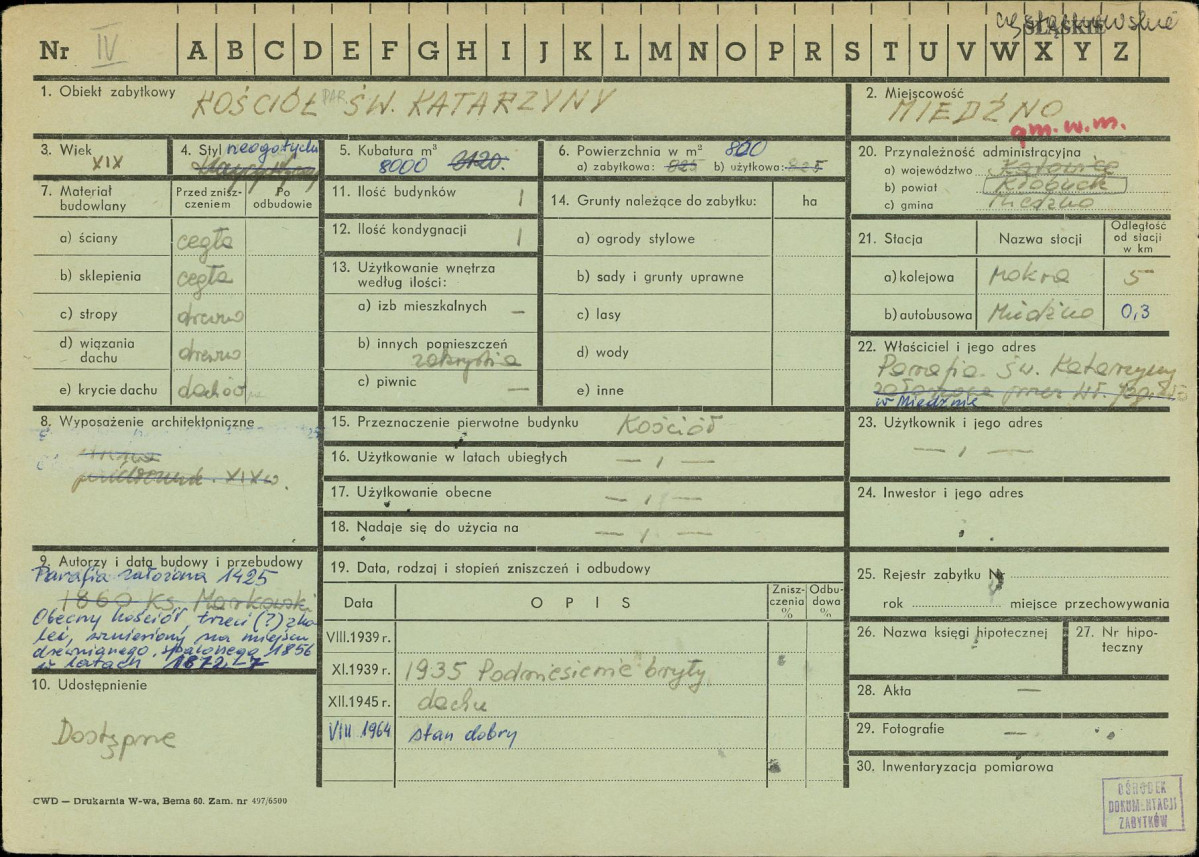 częstochowskie
ŚLĄSKIE
Nr IV A B C D E F G H I J K L M N O P R S T U V W X Y Z
1. Obiekt zabytkowy
KOŚCIÓŁ PAR. ŚW. KATARZYNY
2. Miejscowość
MIEDŹNO
gm. w. m.
3. Wiek
XIX
4. Styl neogotycki
5. Kubatura m³
8000 8120.
6. Powierzchnia w m² 800
a) zabytkowa: 825 b) użytkowa: 825
20. Przynależność administracyjna
a) województwo Katowice
b) powiat Kłobuck
c) gmina Miedźno
7. Materiał budowlany
Przed znisz-
czeniem
Po
odbudowie
a) ściany cegła
b) sklepienia cegła
c) stropy drewno
d) wiązania
dachu drewno
e) krycie dachu dachów
11. Ilość budynków 1
12. Ilość kondygnacji 1
13. Użytkowanie wnętrza
według ilości:
a) izb mieszkalnych —
b) innych pomieszczeń
zakrystia
c) piwnic —
14. Grunty należące do zabytku: ha
a) ogrody stylowe
b) sady i grunty uprawne
c) lasy
d) wody
e) inne
21. Stacja Nazwa stacji Odległość
od stacji
w km
a) kolejowa Mokra 5
b) autobusowa Miedźno 0,3
22. Właściciel i jego adres
Parafia św. Katarzyny
założona przez Wł. Jagiełło
w Miedźnie
8. Wyposażenie architektoniczne
XIX w.
15. Przeznaczenie pierwotne budynku Kościół
16. Użytkowanie w latach ubiegłych — ı —
17. Użytkowanie obecne — ı —
18. Nadaje się do użycia na — ı —
23. Użytkownik i jego adres
— ı —
24. Inwestor i jego adres
9. Autorzy i data budowy i przebudowy
Parafia założona 1425
1860 Ks. Markowski
Obecny kościół, trzeci (?) z ko
lei, wzniesiony na miejscu
drewnianego, spalonego 1856
w latach 1872-7
19. Data, rodzaj i stopień zniszczeń i odbudowy
Data O P I S Znisz-
czenia
% Odbu-
dowa
%
VIII.1939 r.
XI.1939 r. 1935 Podniesienie bryły
XII.1945 r. dachu
VIII 1964 stan dobry
25. Rejestr zabytku Nr
rok miejsce przechowywania
26. Nazwa księgi hipotecznej
27. Nr hipo-
teczny
28. Akta —
29. Fotografie —
30. Inwentaryzacja pomiarowa
10. Udostępnienie
Dostępne
CWD — Drukarnia W-wa, Bema 60. Zam. nr 497/6500
OŚRODEK
DOKUMENTACJI
ZABYTKÓW